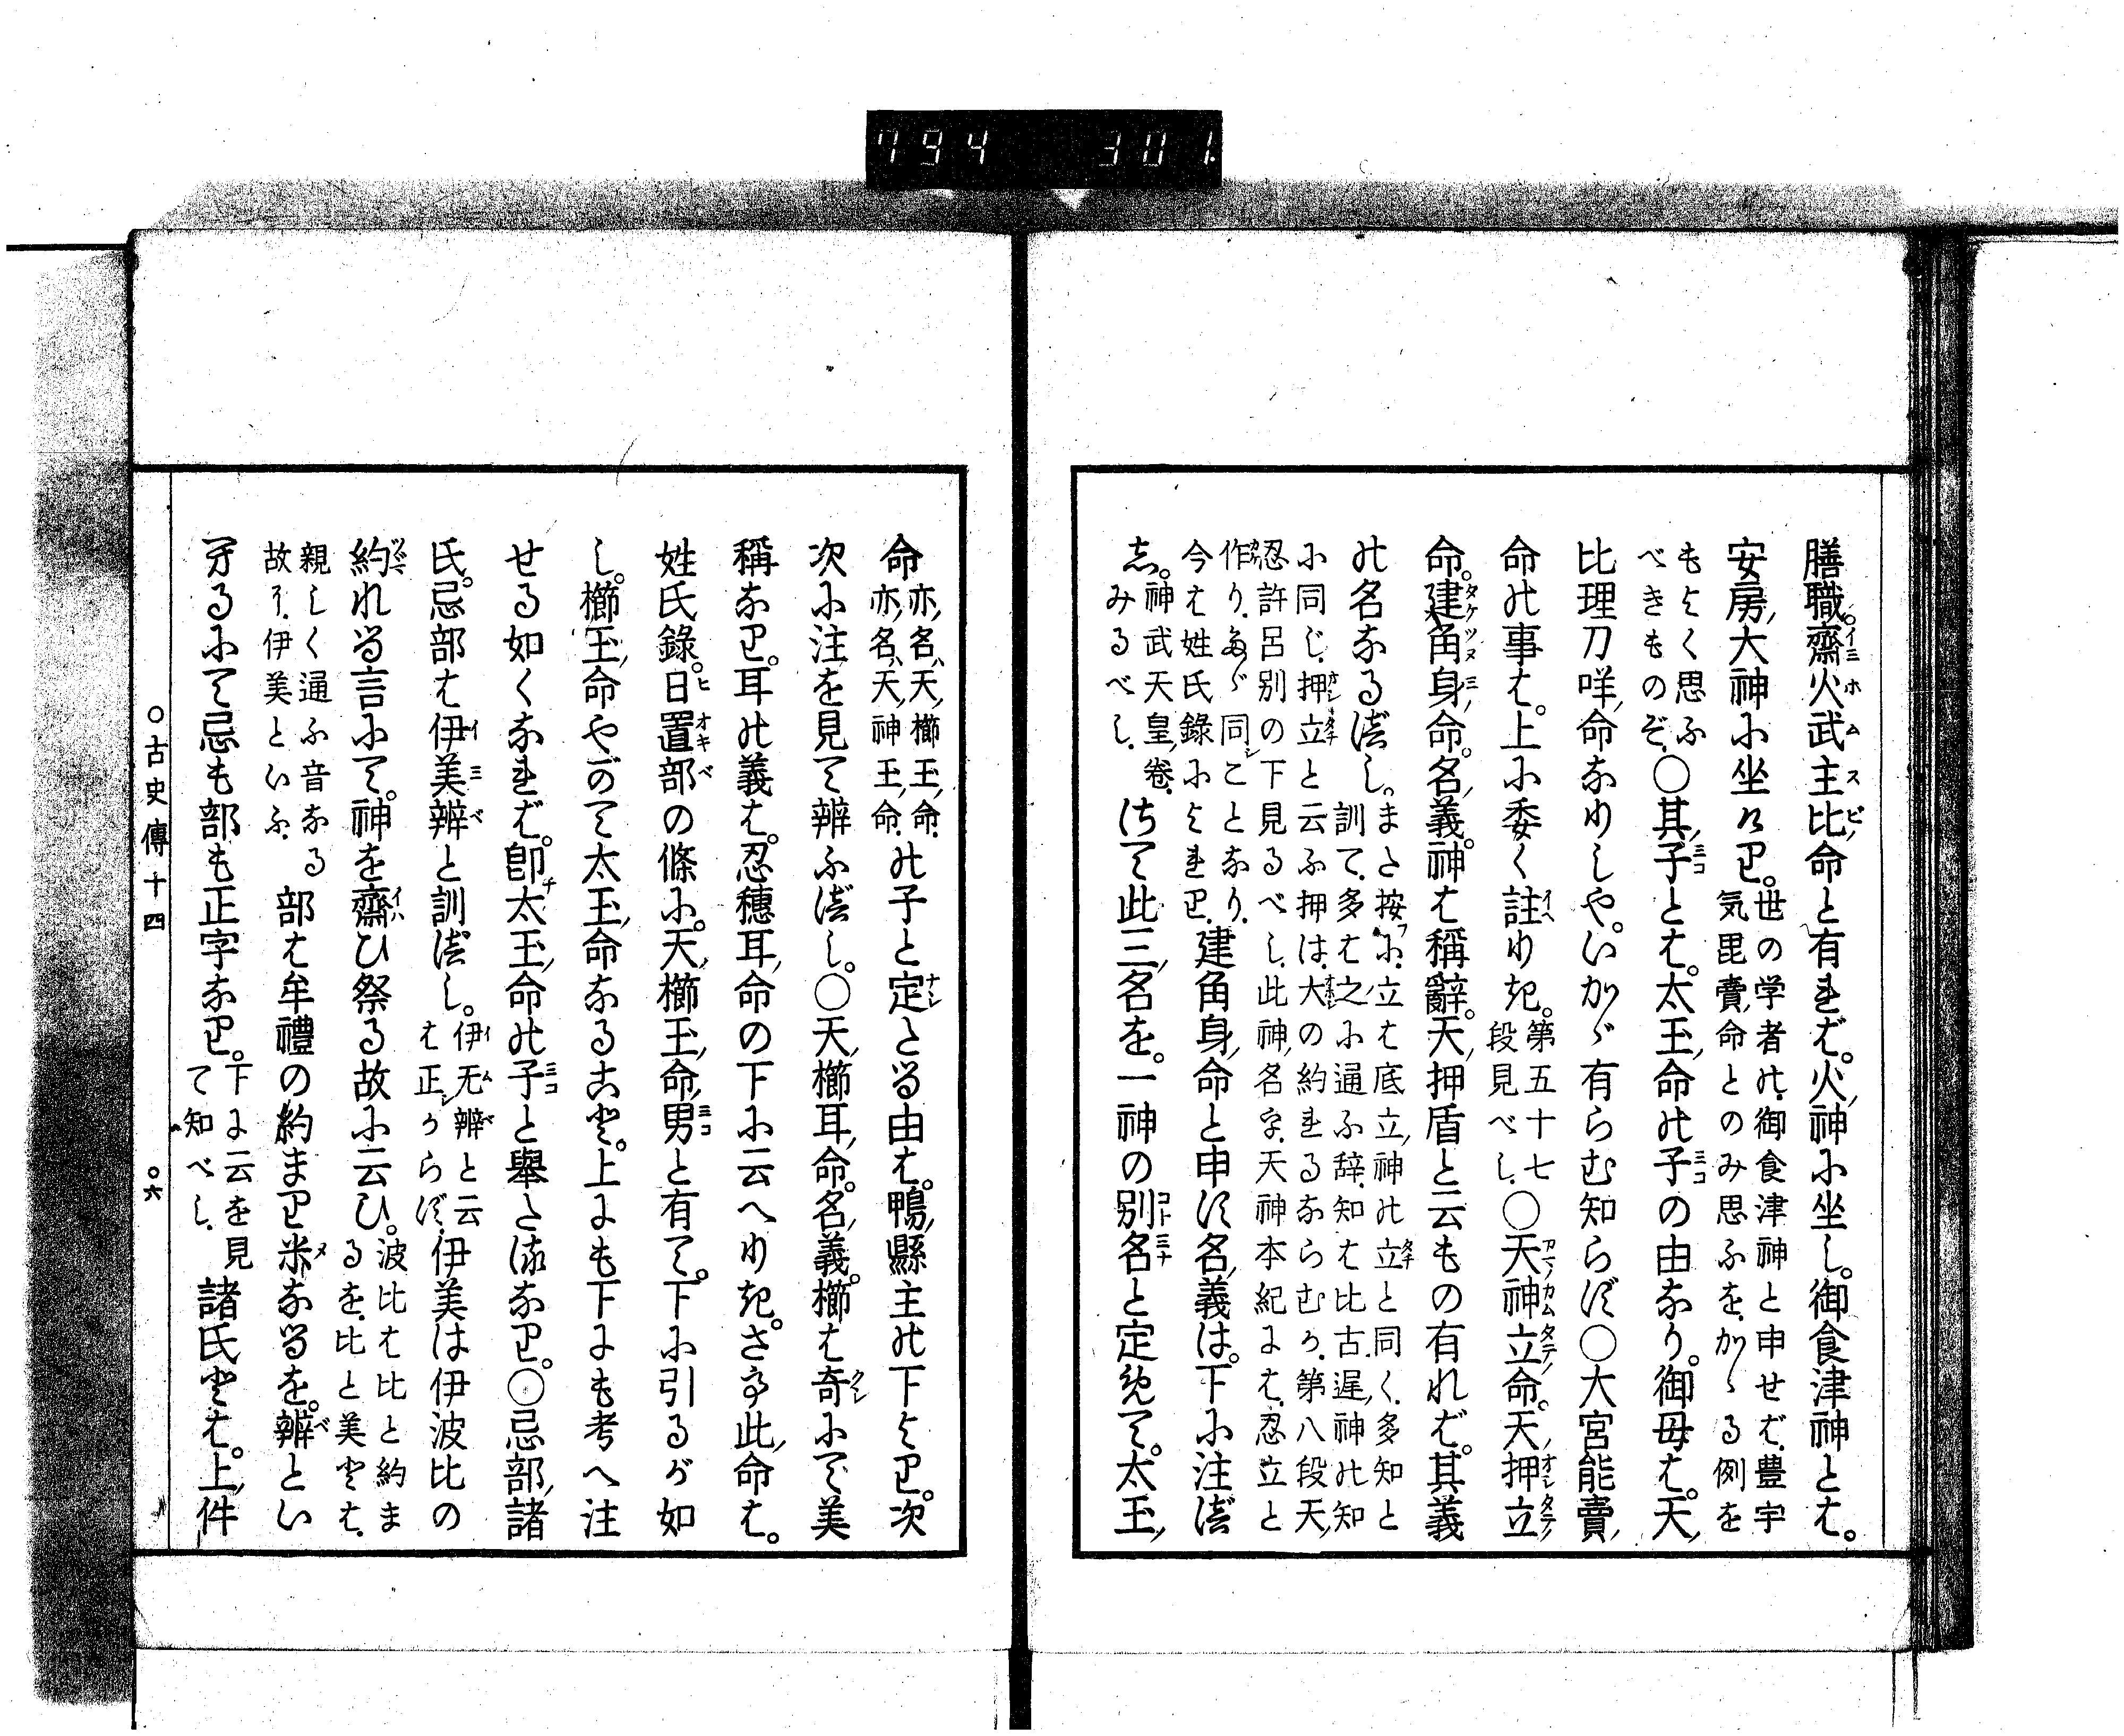 794 301
膳職。齋火武主比命と有れば。火神に坐し。御食津神とは。
安房大神に坐けり。世の学者の。御食津神と申せば。豊宇
気毘賣命とのみ思ふを。かゝる例を
もよく思ふ
べきものぞ。○其子とは。太玉命の子の由なり。御母は。天
比理刀咩命なりしや。いかゞ有らむ知らず○大宮能賣
命の事は。上に委く註りき。第五十七
段見べし。○天神立命。天押立
命。建角身命。名義。神は稱辭。天押盾と云もの有れば。其義
の名なるべし。また按に。立は底立神の立と同く。多知と
訓て。多は之に通ふ辞。知は比古遅神の知
に同じ。押立と云ふ押は。大の約れるならむか。第八段天
忍許呂別の下見るべし。此神名字。天神本紀には。忍立と
作り。ただ同じことなり。
今は姓氏錄によれり。建角身命と申す名義は。下に注べ
し。神武天皇卷
みるべし。さて此三名を。一神の別名と定めて。太玉
命亦名天櫛玉命。
亦名天神玉命。の子と定たる由は。鴨縣主の下より。次
次に注を見て辨ふべし。○天櫛耳命。名義。櫛は奇にて美
稱なり。耳の義は。忍穗耳命の下に云へりき。さて此命は。
姓氏錄。日置部の條に。天櫛玉命男と有て。下に引るが如
し。櫛玉命やがて太玉命なること。上にも下にも考へ注
せる如くなれば。卽太玉命の子と擧たるなり。○忌部諸
氏。忌部は伊美辨と訓べし。伊无辨と云
は正しからず。伊美は伊波比の
約れる言にて。神を齋ひ祭る故に云ひ。波比は比と約ま
るを。比と美とは。
親しく通ふ音なる
故に。伊美といふ。部は牟禮の約まり米なるを。辨とい
ひするにて忌も部も正字なり。下に云を見
て知べし。諸氏とは。上件
○古史傳十四 ○六